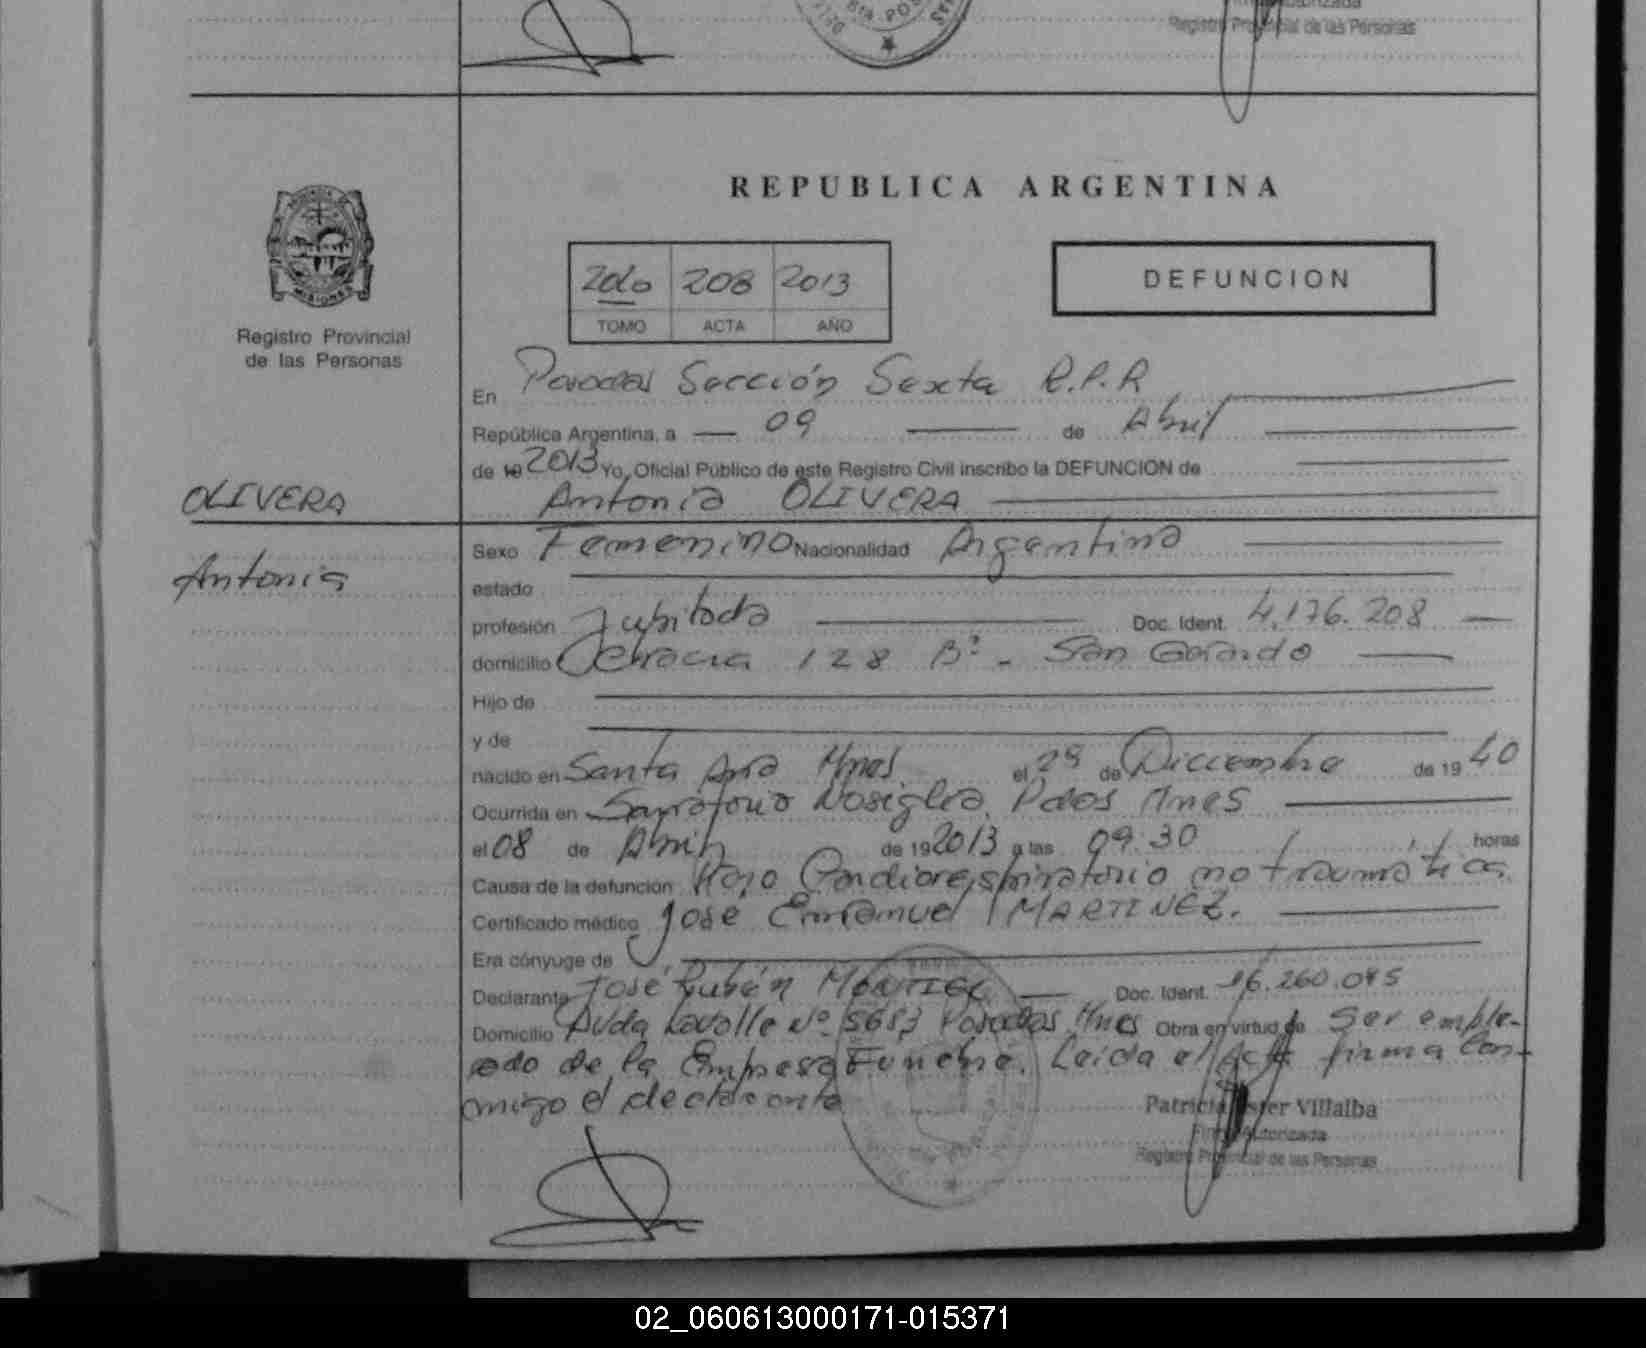 Registro Provincial de las Personas
REPUBLICA ARGENTINA
2do 208 2013
TOMO ACTA AÑO
DEFUNCION
MISIONES
Registro Provincial
de las Personas
En Posadas Sección Sexta R.P.R
República Argentina, a 09 de Abril
de 19 2013 Yo, Oficial Público de este Registro Civil inscribo la DEFUNCION de
OLIVERA
Antonia OLIVERA
Antonia
Sexo Femenino Nacionalidad Argentina
estado
profesión Jubilada Doc. Ident. 4.176.208
domicilio 128 Bº - San Gerardo
Hijo de
y de
nacido en Santa Ana Mnes el 29 de Diciembre de 19 40
Ocurrida en Sanatorio Nosiglia. Pdas Mnes
el 08 de Abril de 19 2013 a las 09:30 horas
Causa de la defunción Paro Cardiorespiratorio no traumatica
Certificado médico José Emmanuel MARTINEZ.
Era cónyuge de
Declarante José Rubén MONTIEL Doc. Ident. 16.260.045
Domicilio Avda Lavalle Nº 5683 Posadas Mnes Obra en virtud de Ser emple-
ado de la Empresa Funebre. Leida el Acta firma con-
migo el declarante
Patricia Ester Villalba
Firma Autorizada
Registro Provincial de las Personas
02_060613000171-015371